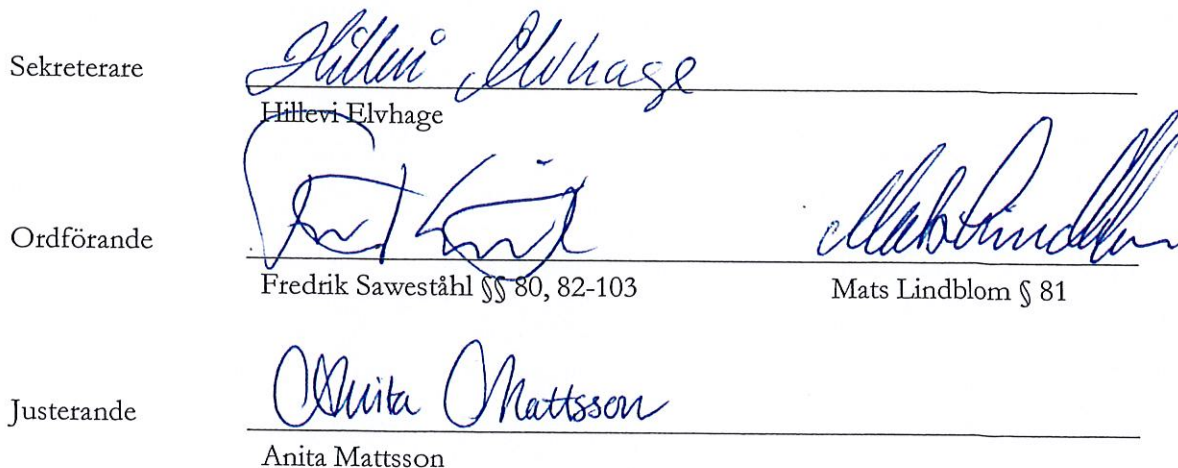 Sekreterare
Hillevi Elvhage
Hillevi Elvhage
Ordförande
Fredrik Saweståhl §§ 80, 82-103
Mats Lindblom
Mats Lindblom § 81
Justerande
Anita Mattsson
Anita Mattsson